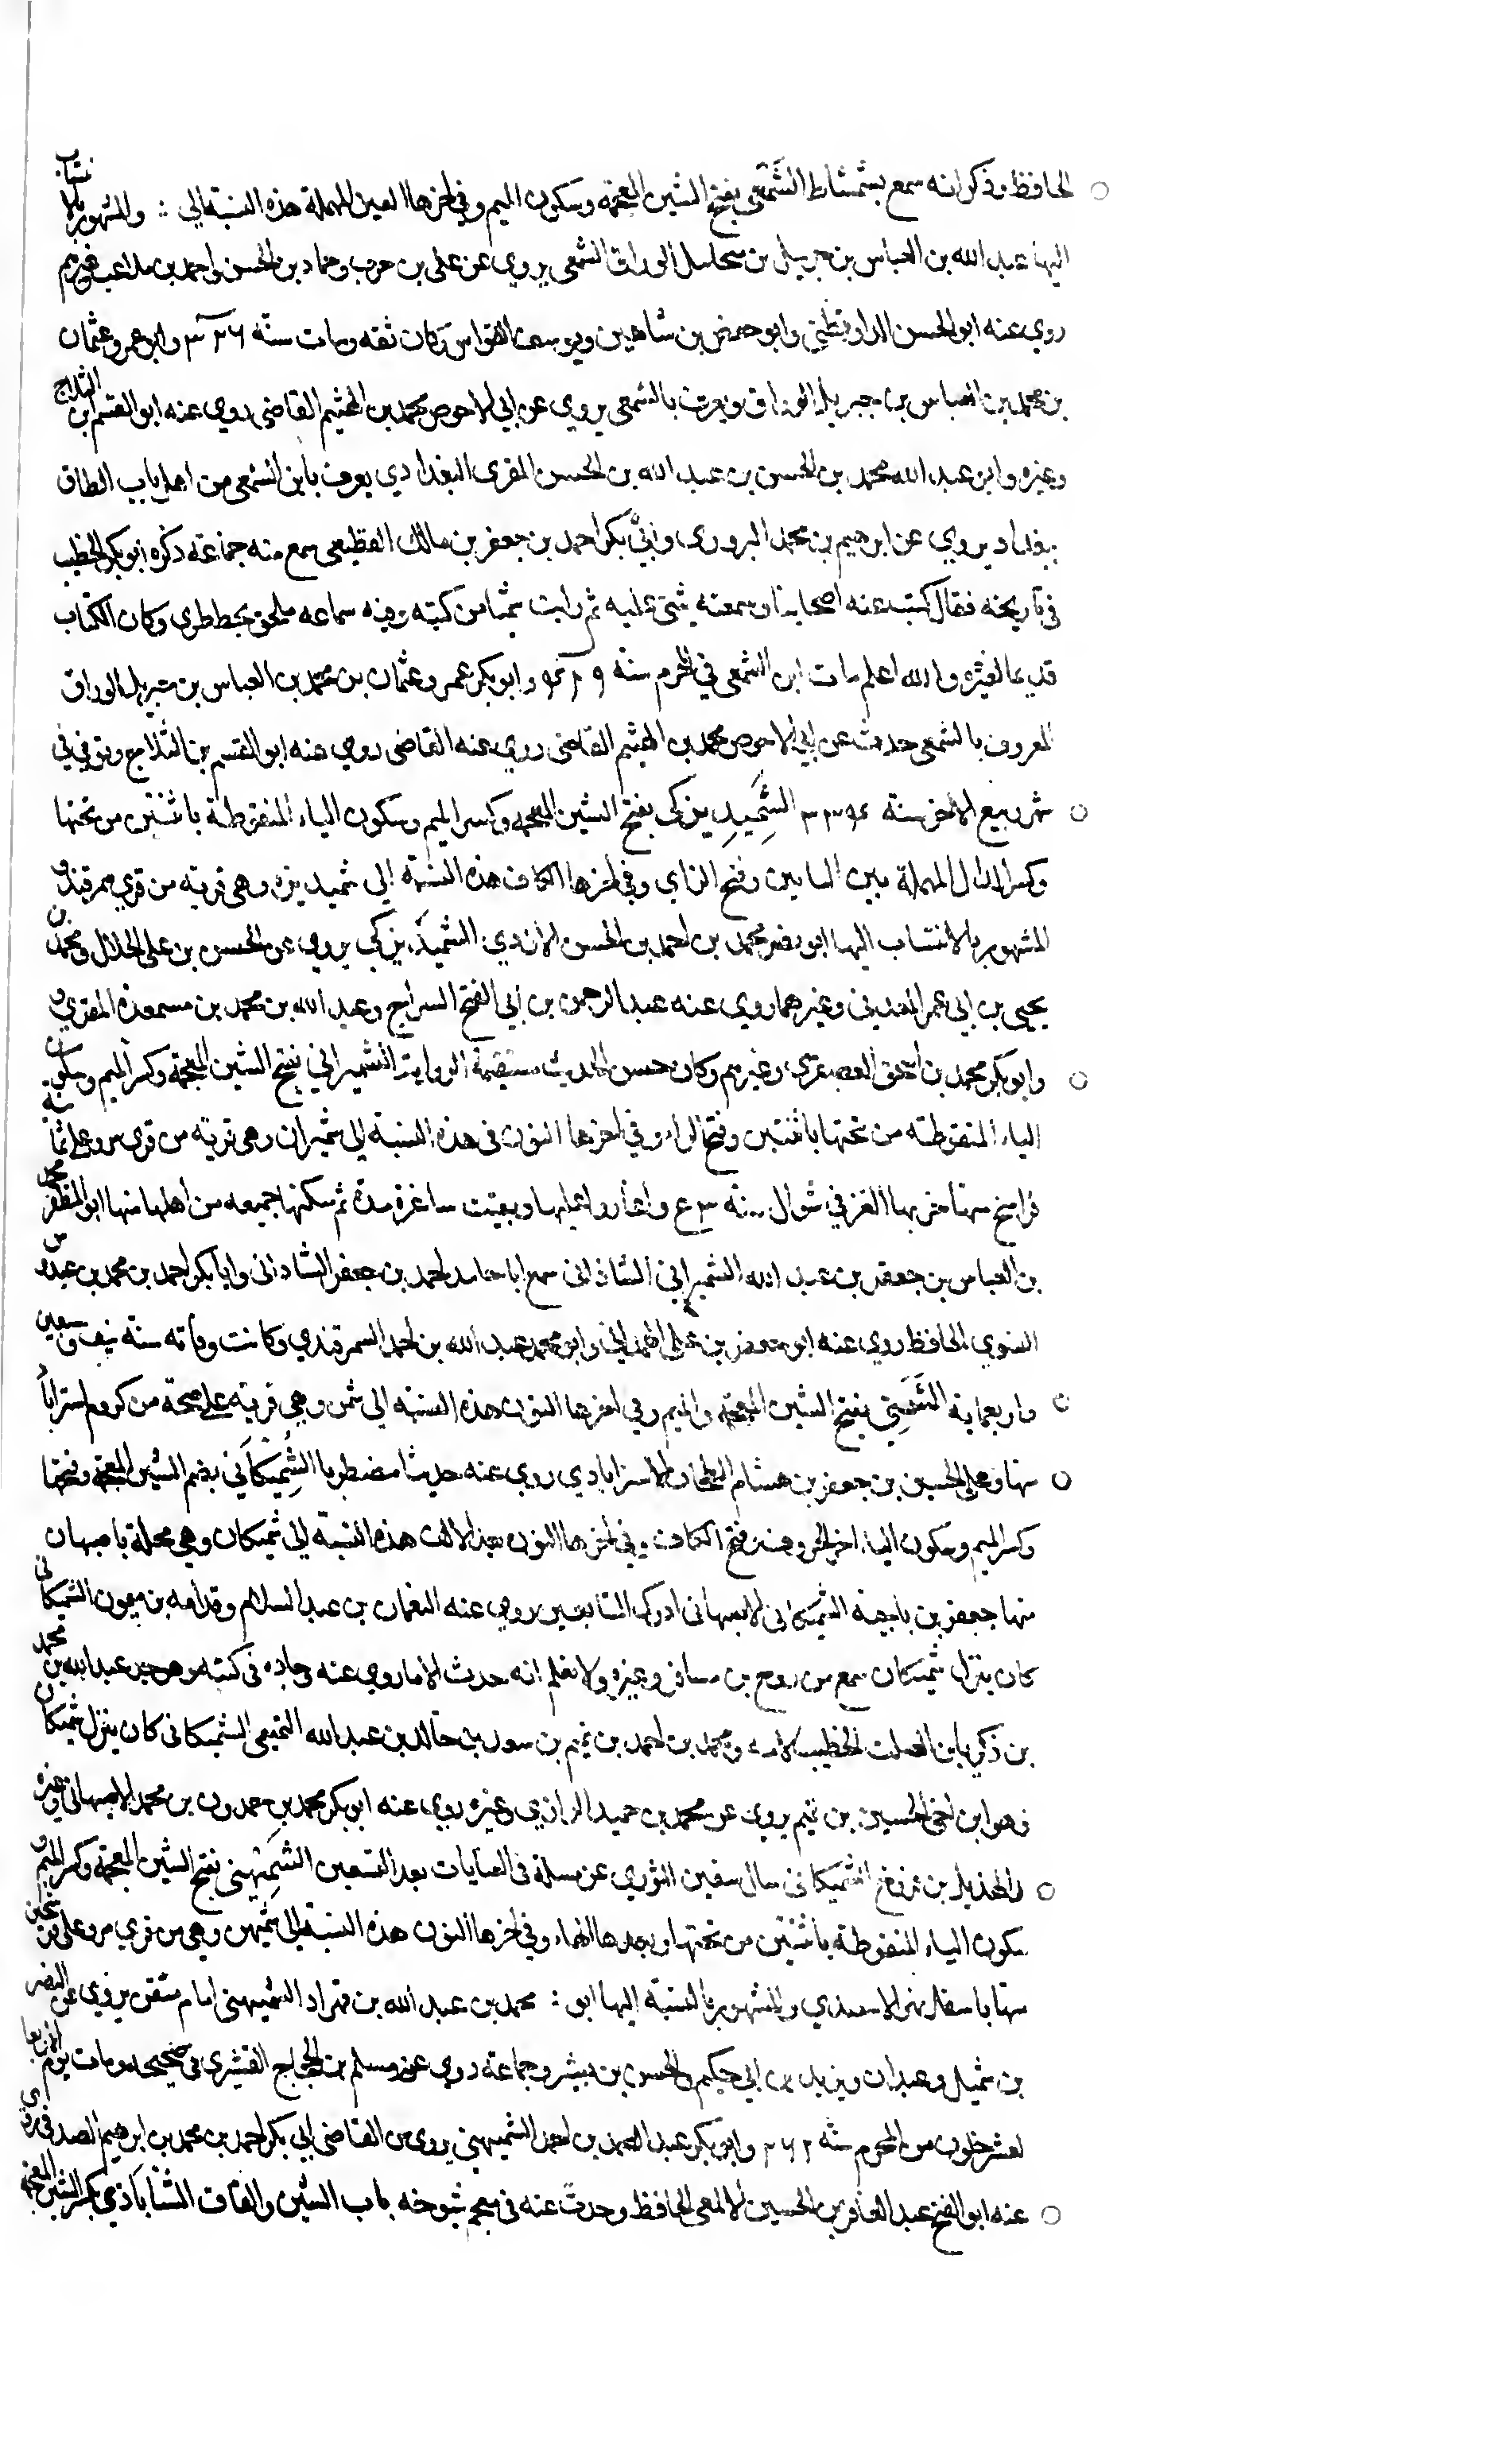 الحافظ وذكر انه سمع بشمشاط الشمعي بفتح الشين المعجمة وسكون الميم وفي اخرها العين المهملة هذه النسبة الى : والمشهور بالانتساب
اليها عبد الله بن العباس بن جبريل بن ميخاييل الوراق الشمعي يروي عن علي بن حرب وحماد بن الحسن واحمد بن ملاعب وغيرهم
روي عنه ابو الحسن الدارقطني وابو حفص بن شاهين ويوسف القواس وكان ثقه ومات سنة ٣٢٦ وابو عمرو عثمان
بن محمد بن العباس بن جبريل الوراق ويعرف بالشمعي يروي عن ابي الاحوص محمد بن الهيثم القاضي روي عنه ابو القسم ابن الثلاج
وغيره وابن عبد الله محمد بن الحسن بن عبد الله بن الحسن المقرى البغدادي يعرف بابن الشمعي من اهل باب الطاق
ببغداد يروي عن ابرهيم بن محمد البزوري وابي بكر احمد بن جعفر بن مالك القطيعي سمع منه جماعة ذكره ابو بكر الخطيب
في تاريخه فقال كتب عنه اصحابنا وسمعته يثنى عليه ثم رايت شيئا من كتبه وفيه سماعه ملحق بخط طري وكان الكتاب
قديما لغيره والله اعلم مات ابن الشمعي في المحرم سنة وابو بكر عمرو عثمان بن محمد بن العباس بن جبريل الوراق
المعروف بالشمعي حدث عن ابي الاحوص محمد بن الهيثم القاضي روي عنه القاضي روي عنه ابو القسم بن الثلاج وتوفي في
شهر ربيع الاخر سنة الشميديزكي بفتح الشين المعجمه وكسر الميم وسكون الياء المنقوطة باثنتين من تحتها
وكسر الدال المهملة بين اليايين وفتح الزاي وفي اخرها الكاف هذه النسبة الى شميديزه وهي قرية من قري سمرقند و
المشهور بالانتساب اليها ابو نصر محمد بن احمد بن الحسن الشميديزكي يروي عن الحسن بن علي الخلال ومحمد بن
يحيى بن ابي عمر العدني وغيرهما روي عنه عبد الرحمن بن ابي الفتح السراج وعبد الله بن محمد بن مسعدة المقري و
وابو بكر محمد بن اسحق العصفري وغيرهم وكان حسن الحديث مستقيمة الرواية الشميراني بفتح الشين المعجمة وكسر الميم وسكون
الياء المنقوطة من تحتها باثنتين وفتح الراء وفي اخرها النون في هذه النسبة الى شميران وهي قريه من قرى مرو على ثمانية
فراسخ منها خربها الغز في شوال واغاروا عليها وبقيت مدة ثم سكنها جميعه من اهلها منها ابو المظفر محمد
بن العباس بن جعفر بن عبد الله الشميراني سمع ابا حامد احمد بن جعفر وابا بكر احمد بن محمد بن عبدوس
النسوي الحافظ روي عنه ابو جعفر بن علي الهمداني وابو محمد عبد الله بن احمد السمرقندي وكانت وفاته سنة نيف وسبعين
واربعماية الشمني بفتح الشين المعجمة والميم وفي اخرها النون هذه النسبة الى شمن وهي قرية على صحة من كروم استراباد
منها وعلى الحسين بن جعفر بن هشام الطحان الاسترابادي روي عنه حديثا مضطربا الشميكاني بضم الشين المعجمة وفتحها
وكسر الميم وسكون الياء اخر الحروف وفتح الكاف وفي اخرها النون بعد الالف هذه النسبة الى شميكان وهي محلة باصبهان
منها جعفر بن ناجية الشميكاني الاصبهاني ادرك التابعين روي عنه النعمان بن عبد السلام وقدامه بن ميمون الشميكاني
كان ينزل شميكان سمع من روح بن مسافر وغيره ولا نعلم انه حدث الا ما روي عنه وجاده في كتبه وهو جد عبد الله بن محمد
بن زكريا بن الصلت الخطيب لامه ومحمد بن احمد بن تميم بن سعد بن خالد بن عبد الله التميمي الشميكاني كان ينزل شميكان
وهو ابن اخي الحسين بن تميم يروي عن محمد بن حميد الرازي وغيره روي عنه ابو بكر محمد بن حمدون بن محمد الاصبهاني وغيره
والهذيل بن فروخ الشميكاني سال سفين الثوري عن مسلة في بعد التسعين الشميهني بفتح الشين المعجمة وكسر الميم و
سكون الياء المنقوطة باثنتين من تحتها وبعدها الهاء وفي اخرها النون هذه النسبة الى شميهن وهي من قري مرو على فرسخين
منها باسفل نهر والمشهور بالنسبة اليها ابو : محمد بن عبد الله بن قهزاد الشميهني امام متقن يروي عن النضر
بن شميل وعبدان ويزيد بن ابي حكيم والحسن بن بشر وجماعة روي عنه مسلم بن الحجاج القشيري في صحيحه ومات يوم الاربعا
لعشر خلون من المحرم سنة ٢٦٢ وابو بكر عبد الصمد بن احمد الشميهني يروي عن القاضي ابي بكر احمد بن محمد بن ابرهيم الصدفي روي
عنه ابو الفتح عبد الغافر بن الحسين الالمعي الحافظ وحدث عنه في معجم شيوخه باب الشين والنون الشناباذي بكسر الشين المعجمة